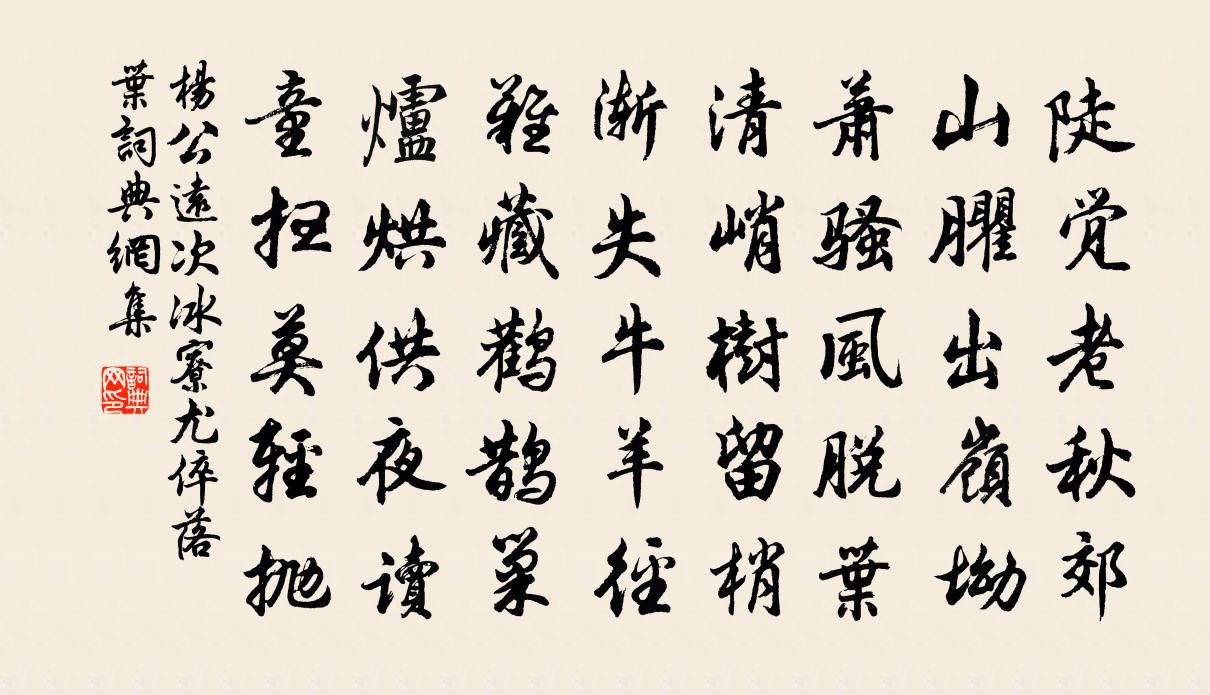 陡覚老秋郊
山臞出嶺坳
蕭騷風脱葉
清峭樹留梢
漸失牛羊徑
難藏鸛鵲巢
爐烘供夜讀
童扫莫輕抛
楊公遠次冰寮尤倅落
葉詞典網集
詞典
网印